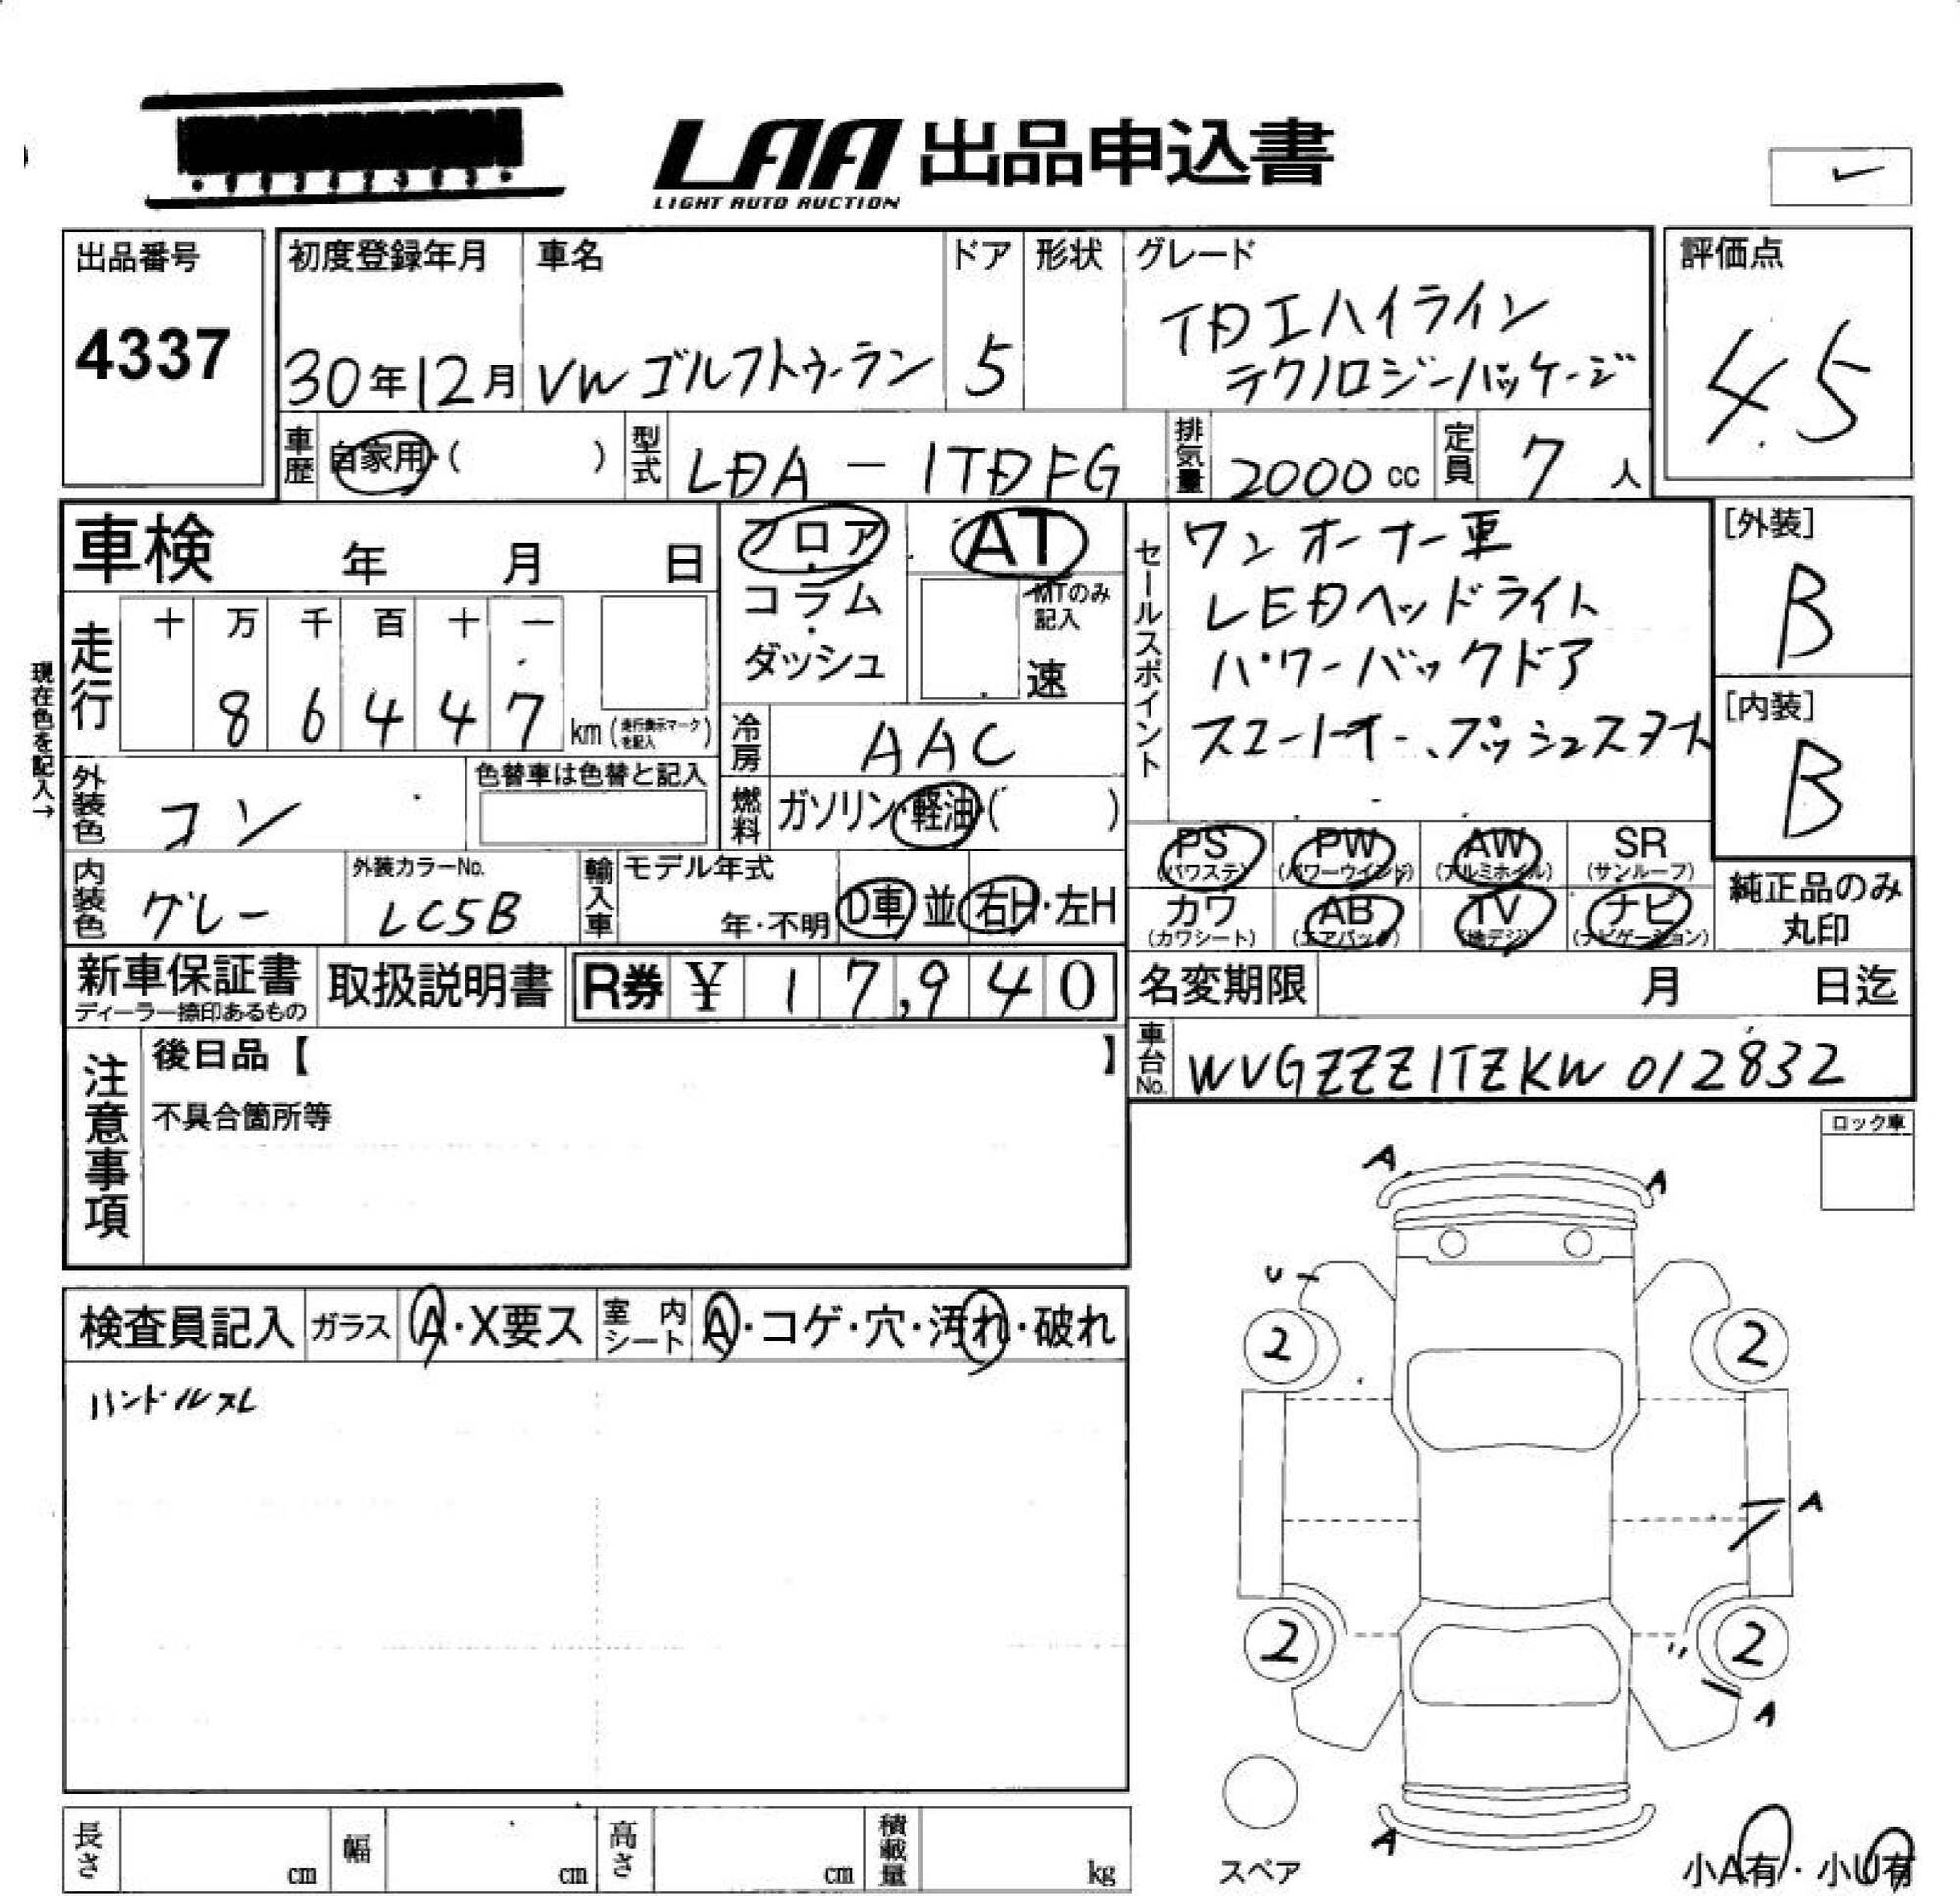 LAA 出品申込書
LIGHT AUTO AUCTION
出品番号
4337
初度登録年月
30年12月
車名
VW ゴルフトゥーラン
ドア
5
形状
グレード
TDIハイライン
テクノロジーパッケージ
評価点
4.5
車歴 自家用・( )
型式 LDA-1TDFG
排気量 2000 cc
定員 7 人
車検 年 月 日
フロア・コラム・ダッシュ
AT
MTのみ記入
速
走行
十 万 千 百 十 一
8 6 4 4 7 km (走行表示マークを記入)
現在色を記入→
外装色 コン
色替車は色替と記入
冷房 AAC
燃料 ガソリン・軽油・( )
内装色 グレー
外装カラーNo.
LC5B
輸入車
モデル年式
年・不明
D車・並 右H・左H
セールスポイント
ワンオーナー車
LEDヘッドライト
パワーバックドア
[外装]
B
[内装]
B
PS (パワステ)
PW (パワーウインド)
AW (アルミホイル)
SR (サンルーフ)
カワ (カワシート)
AB (エアバック)
TV (地デジ)
ナビ (ナビゲーション)
純正品のみ
丸印
新車保証書
ディーラー捺印あるもの
取扱説明書
R券 ¥ 17,940
名変期限 月 日迄
車台No. WVGZZZ1TZKW012832
注意事項
後日品【 】
不具合箇所等
ロック車
検査員記入
ガラス A・X要ス
室内シート A・コゲ・穴・汚れ・破れ
ハンドルスレ
A
A
U
2
2
A
2
2
A
A
スペア
小A有・小U有
長さ cm
幅 cm
高さ cm
積載量 kg